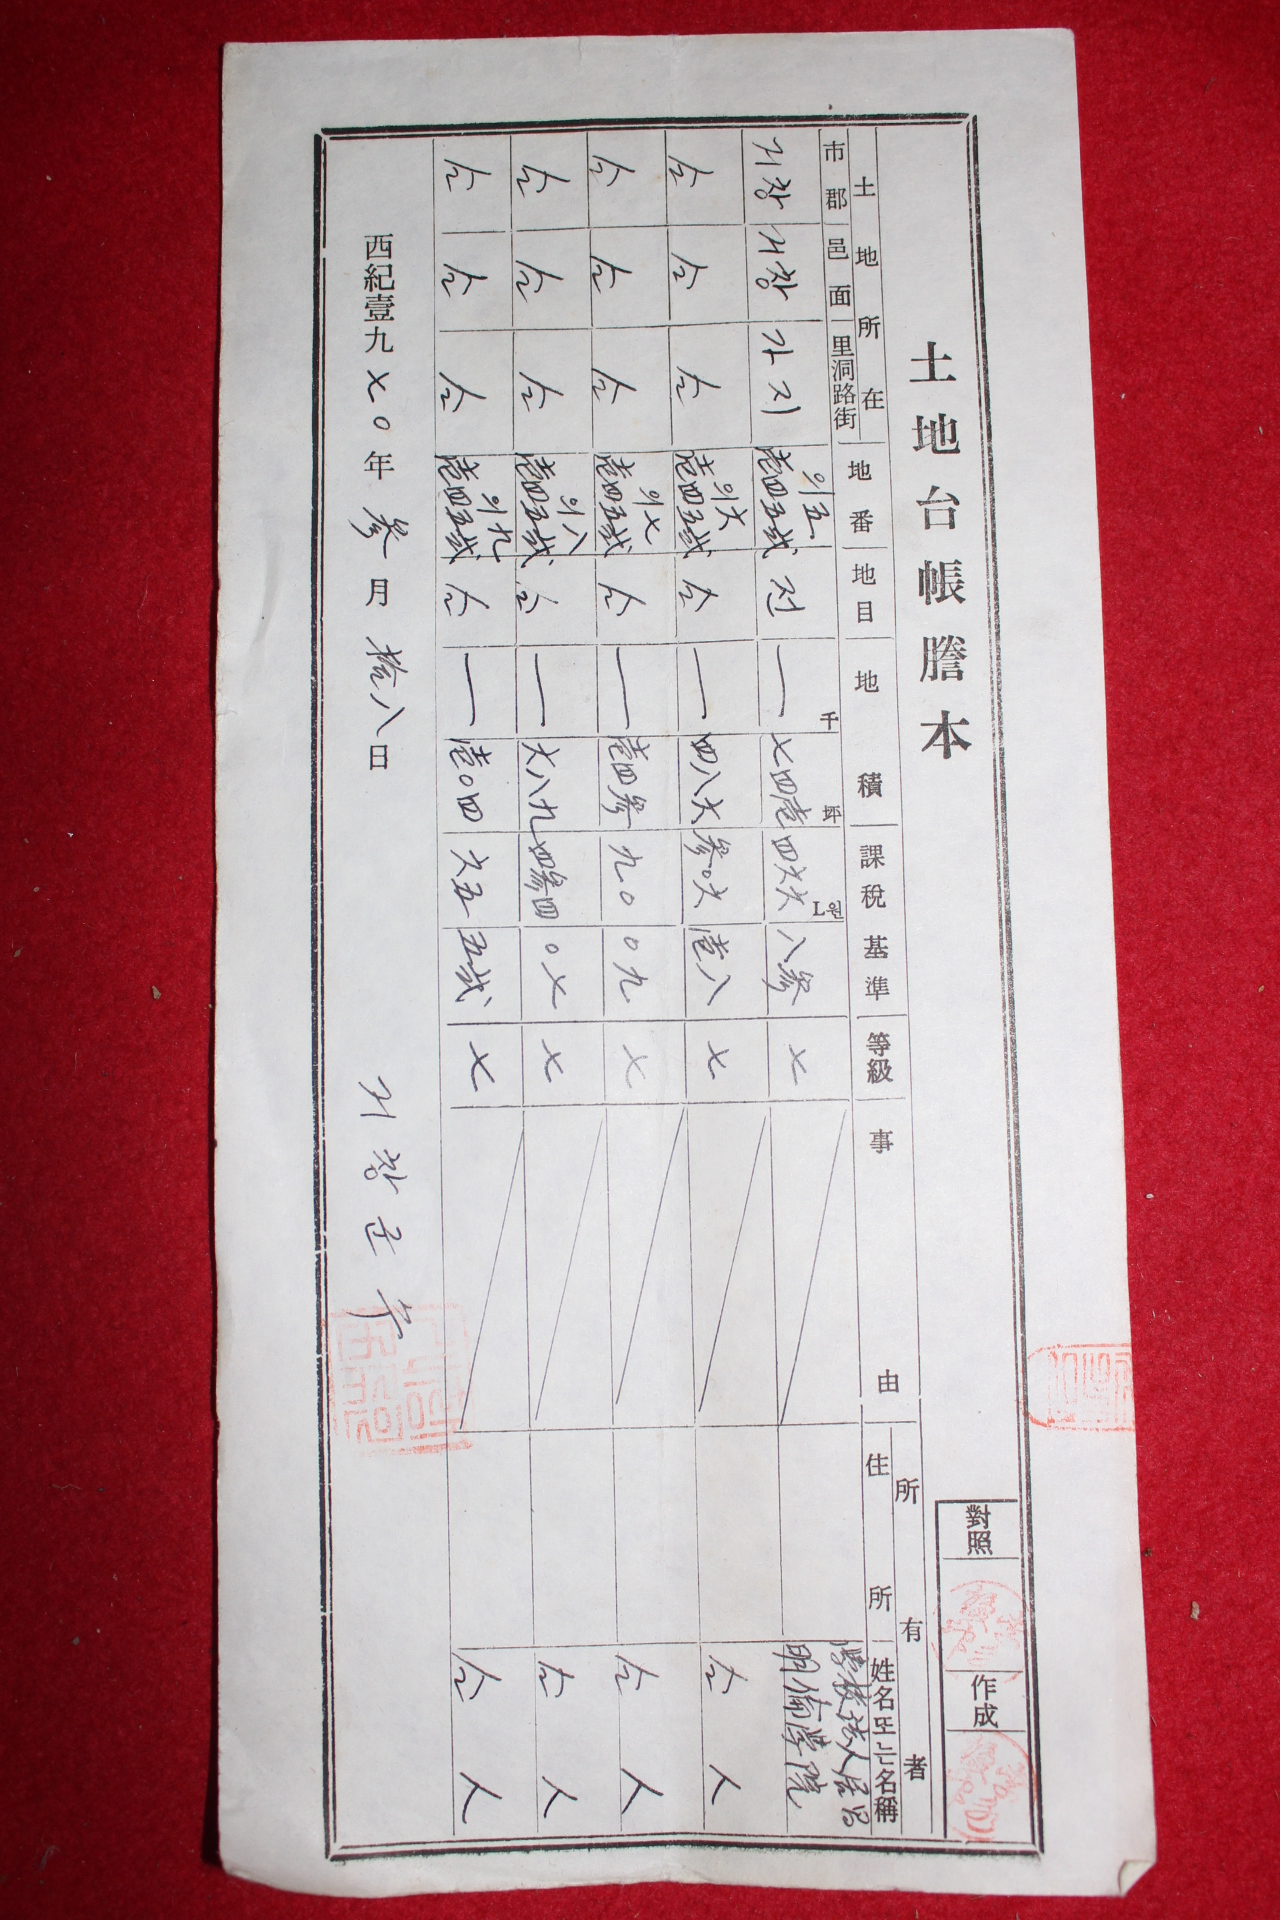 土地台帳謄本
對照 作成
土地所在 地番 地目 地積 課稅基準 等級 事由 所有者
市郡 邑面 里洞路街 住所 姓名또는名稱
千 坪 L원
거창 거창 가지 壱四五弍의五 전 一 七四壱 四六六 八参 七 學校法人居昌明倫學院
仝 仝 仝 壱四五弍의六 仝 一 四八六 参〇六 壱八 七 仝人
仝 仝 仝 壱四五弍의七 仝 一 壱四参 九〇 〇九 七 仝人
仝 仝 仝 壱四五弍의八 仝 一 六八九 四参四 〇七 七 仝人
仝 仝 仝 壱四五弍의九 仝 一 壱〇四 六五 五弍 七 仝人
西紀壹九七〇年 参月 拾八日 거창군수